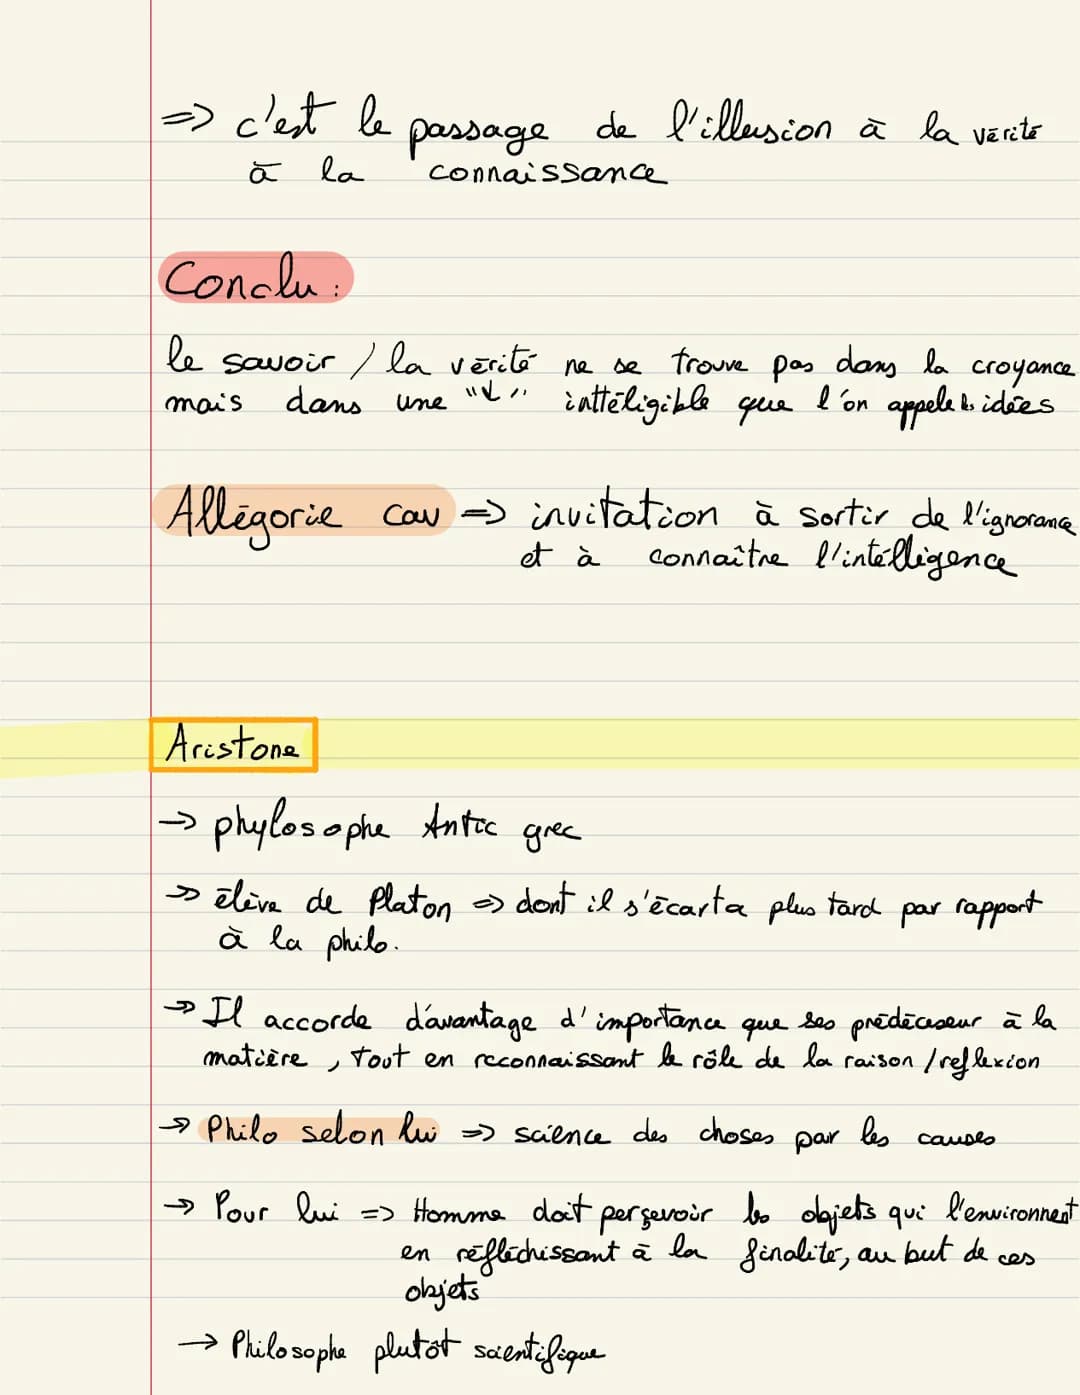 => c'est le passage de l'illusion à la vérité
à la connaissance
Conclu :
le savoir / la vérité ne se trouve pas dans la croyance
mais dans une "↓" inttéligible que l'on appele les idées
Allégorie cav => invitation à sortir de l'ignorance
et à connaître l'intélligence
Aristone
-> phylosophe Antic grec
-> élève de Platon => dont il s'écarta plus tard par rapport
à la philo.
-> Il accorde d'avantage d'importance que ses prédécaseur à la
matière, tout en reconnaissant le rôle de la raison / reflexion
-> Philo selon lui => science des choses par les causes
-> Pour lui => Homme doit perçevoir les objets qui l'environnent
en réfléchissant à la finalité, au but de ces
objets
-> Philosophe plutôt scientifique